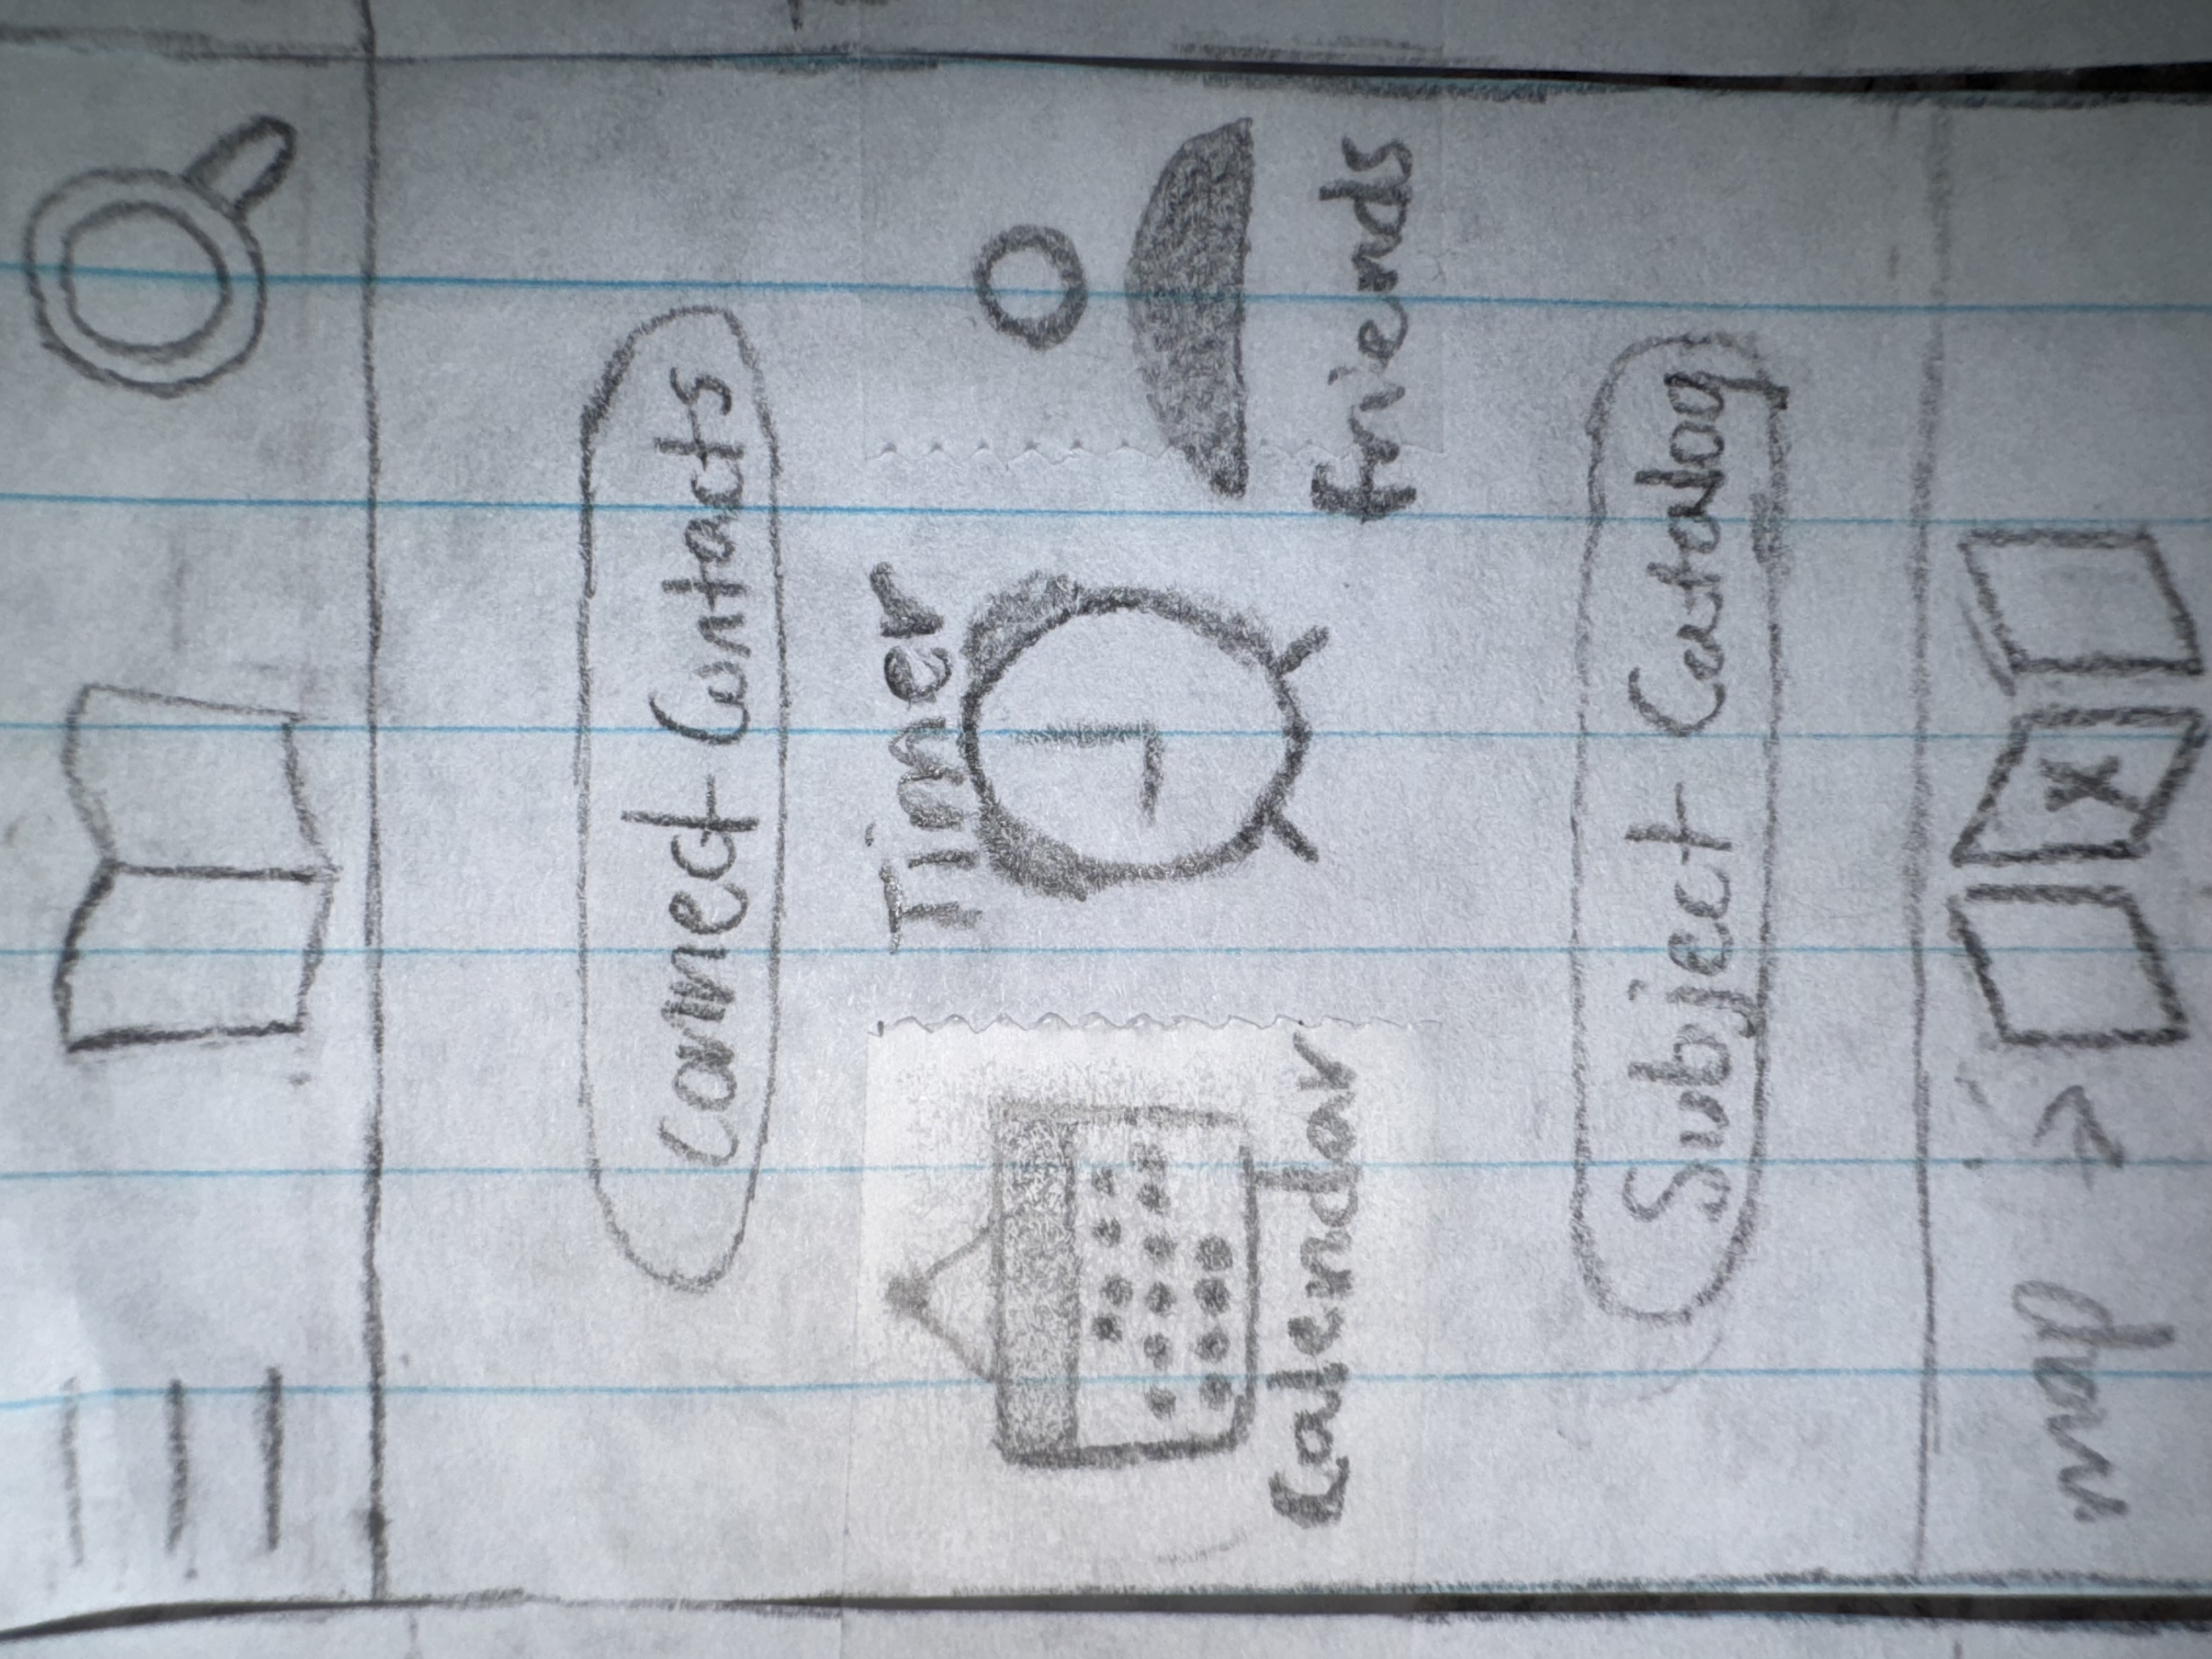 Connect Contacts
Timer
Calendar
Friends
Subject Catalog
map → X